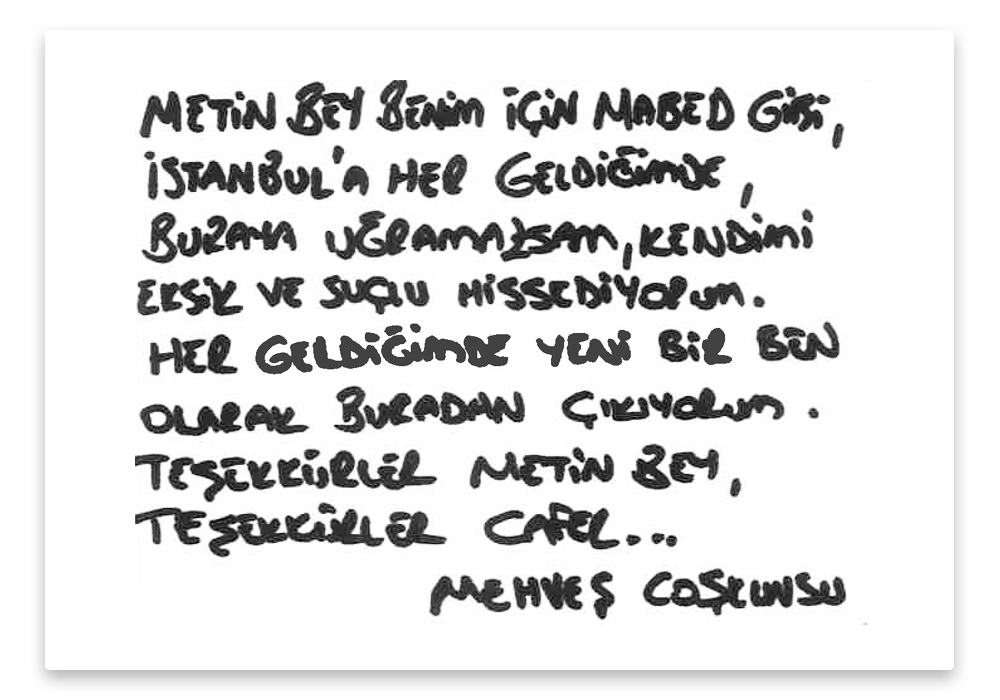 METİN BEY BENİM İÇİN MABED GİBİ,
İSTANBUL'A HER GELDİĞİMDE,
BURAYA UĞRAMAZSAM, KENDİMİ
EKSİK VE SUÇLU HİSSEDİYORUM.
HER GELDİĞİMDE YENİ BİR BEN
OLARAK BURADAN ÇIKIYORUM.
TEŞEKKÜRLER METİN BEY,
TEŞEKKÜRLER CAFER...
MEHVEŞ COŞKUNSU